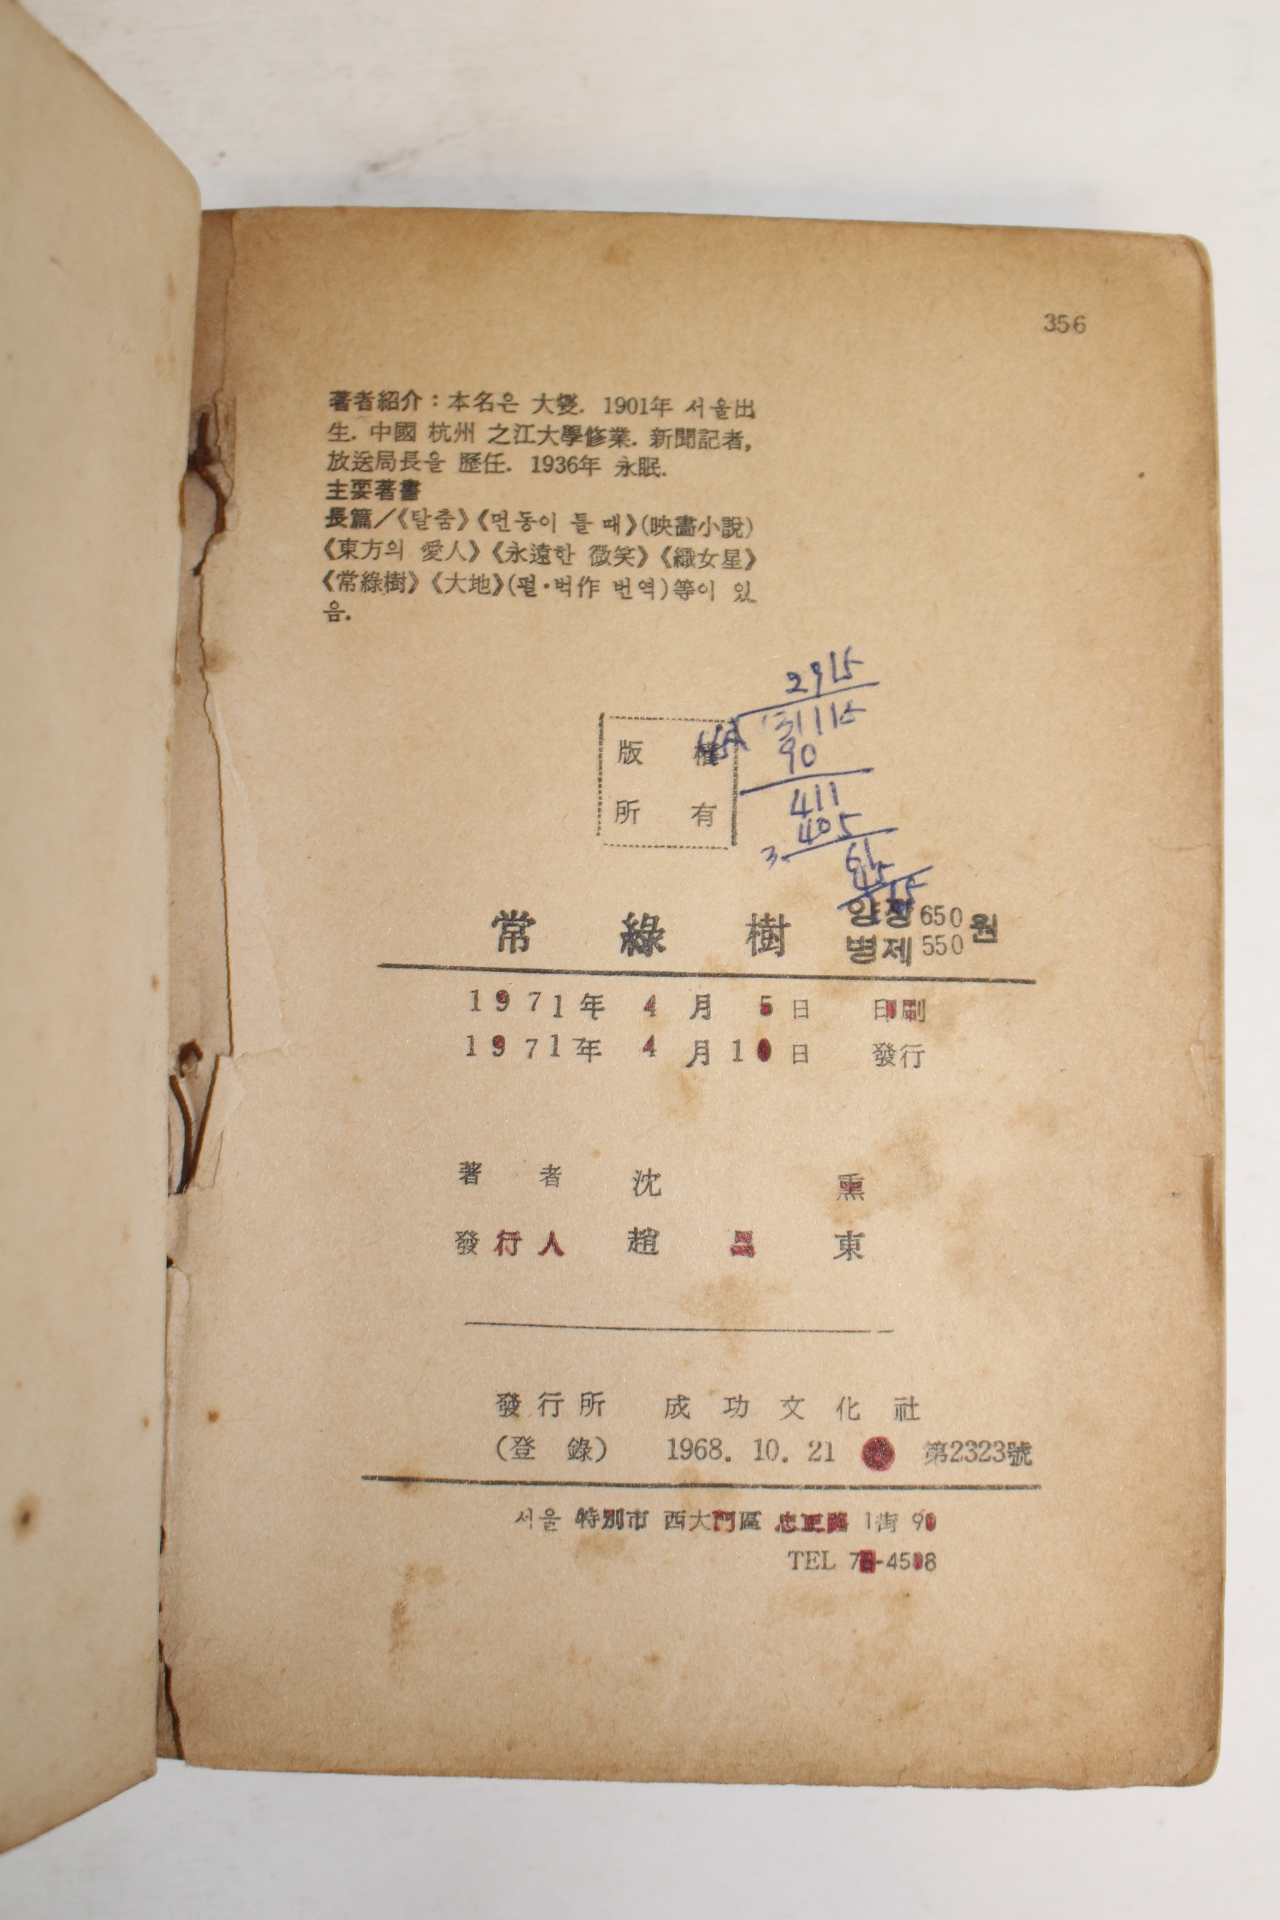 356
著者紹介 : 本名은 大燮. 1901年 서울出
生. 中國 杭州 之江大學修業. 新聞記者,
放送局長을 歷任. 1936年 永眠.
主要著書
長篇/《탈춤》《먼동이 틀 때》(映畵小說)
《東方의 愛人》《永遠한 微笑》《織女星》
《常綠樹》《大地》(펄·벅作 번역)等이 있
음.
2915
131115
90
411
405
3
61
45
15
版 權
所 有
常 綠 樹 양장 650 원
병제 550
1971年 4 月 5 日 印刷
1971年 4 月 10 日 發行
著 者 沈 熏
發行人 趙 昌 東
發行所 成功文化社
(登 錄) 1968. 10. 21 第2323號
서울 特別市 西大門區 忠正路 1街 90
TEL 73-4508